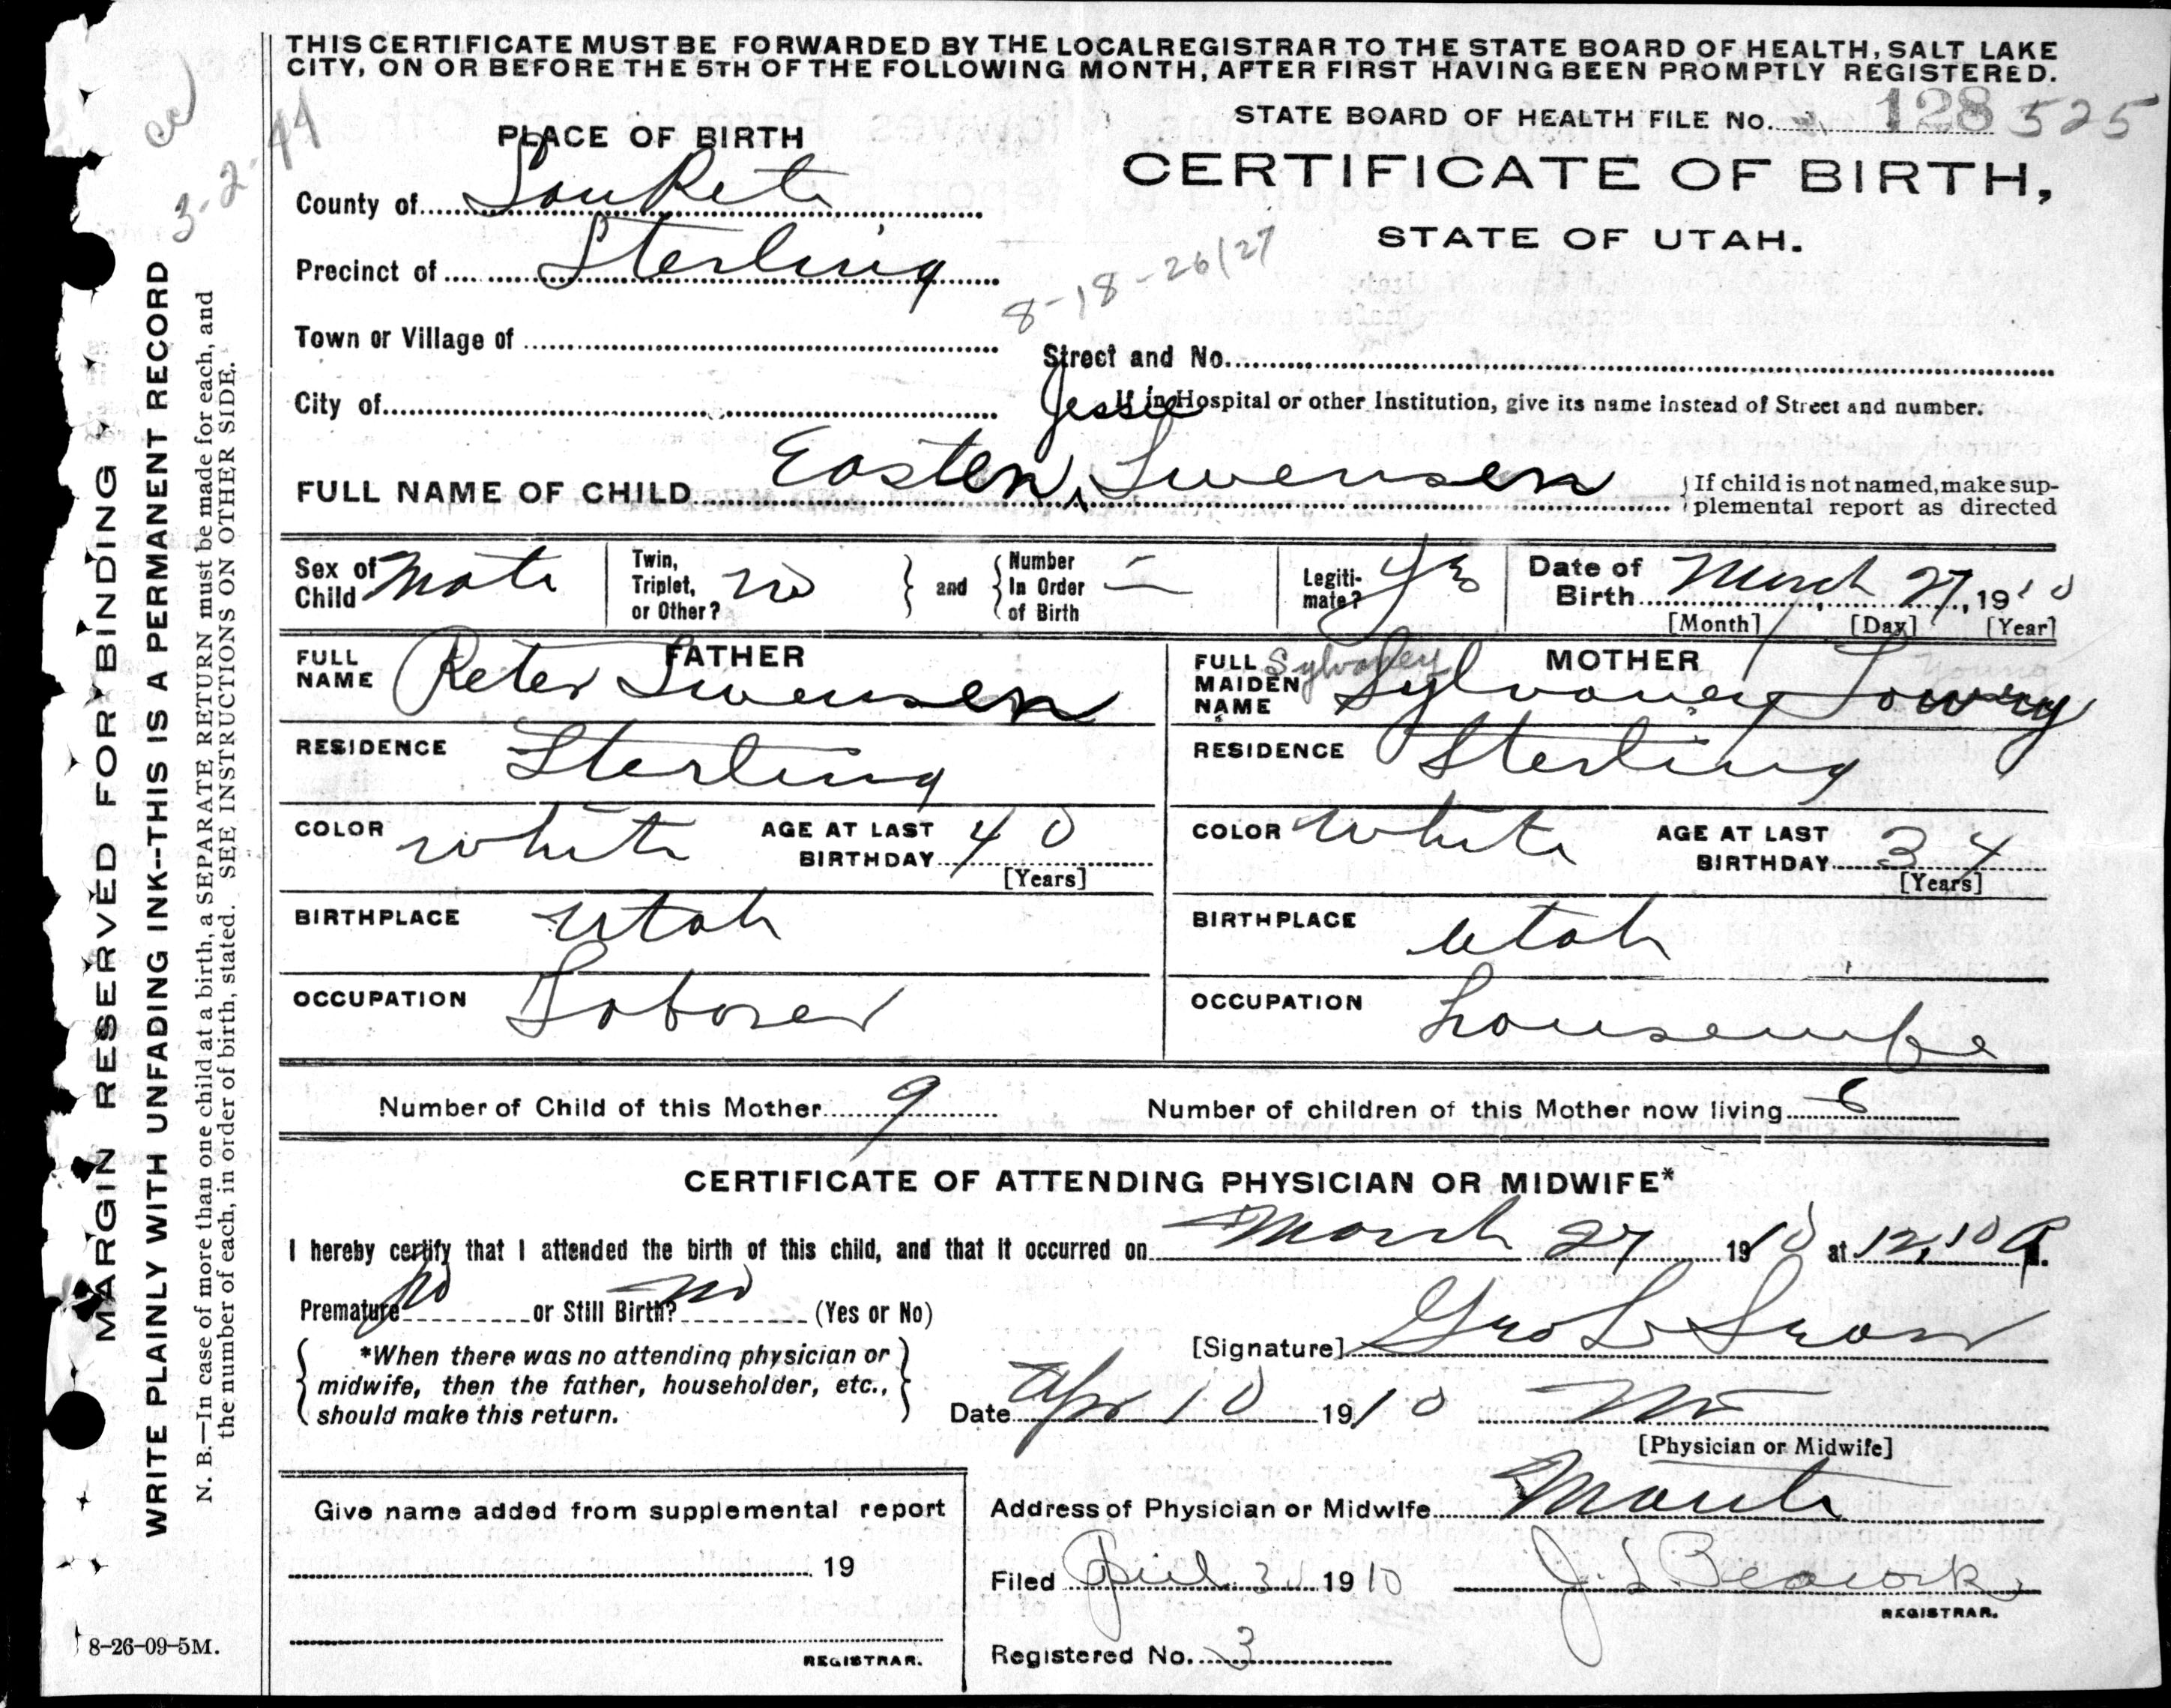 THIS CERTIFICATE MUST BE FORWARDED BY THE LOCAL REGISTRAR TO THE STATE BOARD OF HEALTH, SALT LAKE
CITY, ON OR BEFORE THE 5TH OF THE FOLLOWING MONTH, AFTER FIRST HAVING BEEN PROMPTLY REGISTERED.
STATE BOARD OF HEALTH FILE No. 128 525
3-2-44
PLACE OF BIRTH
CERTIFICATE OF BIRTH,
STATE OF UTAH.
County of SanPete
Precinct of Sterling
8-18-26/27
Town or Village of
Street and No.
City of
If in Hospital or other Institution, give its name instead of Street and number.
Jessie
FULL NAME OF CHILD Easten Swensen
If child is not named, make sup-
plemental report as directed
Sex of Child Male
Twin, Triplet, or Other? no
and
Number In Order of Birth —
Legiti-mate? Yes
Date of Birth March 27, 1910
[Month] [Day] [Year]
FATHER
FULL NAME Peter Swensen
RESIDENCE Sterling
COLOR white
AGE AT LAST BIRTHDAY 40
[Years]
BIRTHPLACE Utah
OCCUPATION Laborer
MOTHER
FULL MAIDEN NAME Sylvaney Lowry
Sylvaney
Young
RESIDENCE Sterling
COLOR white
AGE AT LAST BIRTHDAY 34
[Years]
BIRTHPLACE Utah
OCCUPATION housewife
Number of Child of this Mother 9
Number of children of this Mother now living 6
CERTIFICATE OF ATTENDING PHYSICIAN OR MIDWIFE*
I hereby certify that I attended the birth of this child, and that it occurred on March 27 1910 at 12,10
Premature no or Still Birth? no (Yes or No)
*When there was no attending physician or
midwife, then the father, householder, etc.,
should make this return.
[Signature] Geo L Swan
Date Apr 10 1910
[Physician or Midwife]
Give name added from supplemental report
19
REGISTRAR.
Address of Physician or Midwife Manti
Filed April 3 1910 J. L. Peacock
REGISTRAR.
Registered No. 3
8-26-09-5M.
MARGIN RESERVED FOR BINDING
WRITE PLAINLY WITH UNFADING INK--THIS IS A PERMANENT RECORD
N. B.—In case of more than one child at a birth, a SEPARATE RETURN must be made for each, and
the number of each, in order of birth, stated. SEE INSTRUCTIONS ON OTHER SIDE.